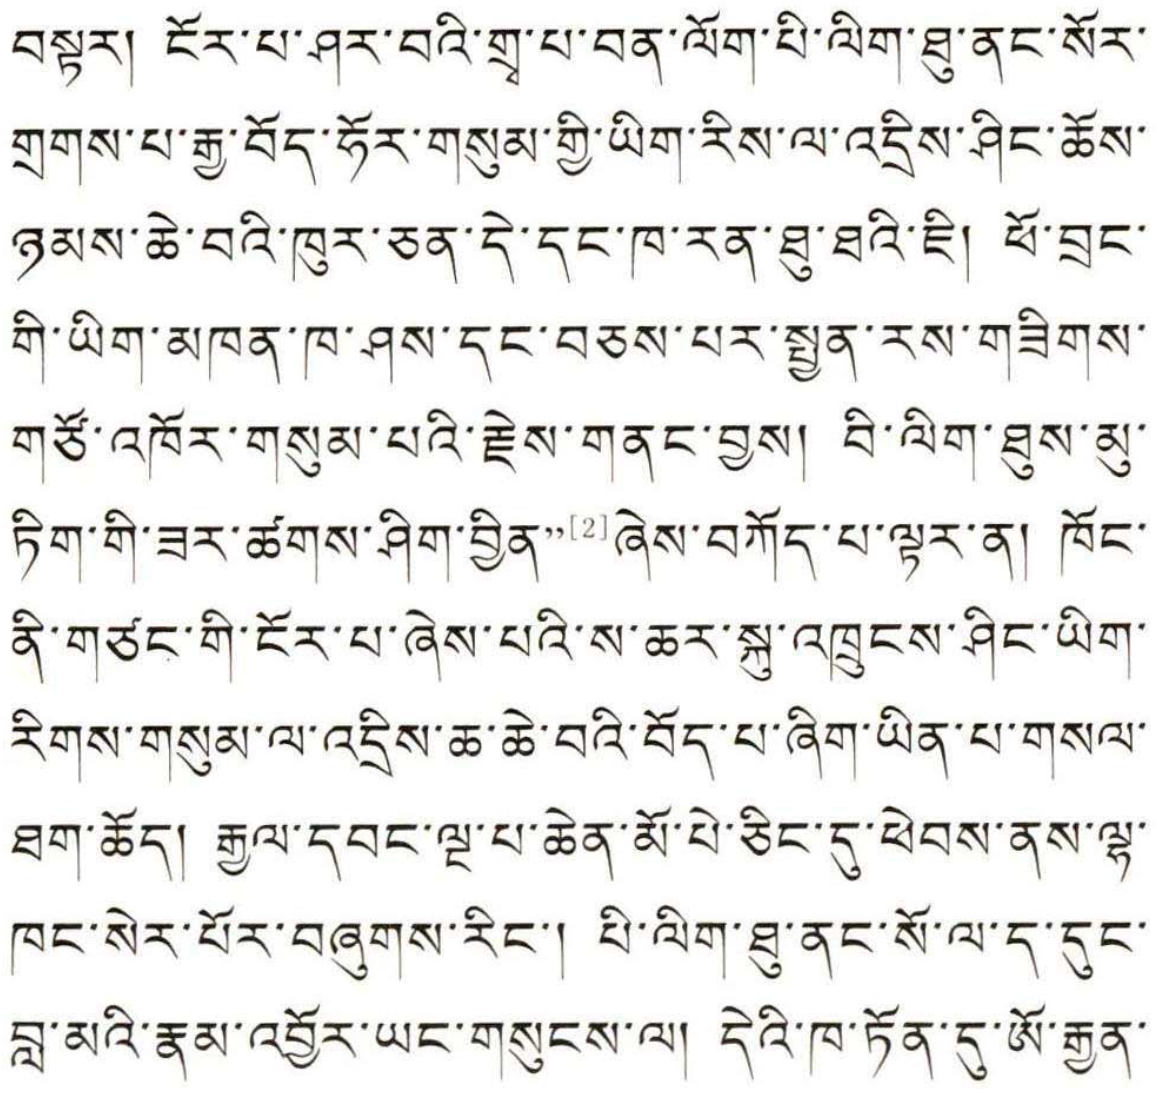 བསྟར། ངོར་པ་ཤར་བའི་གྲྭ་པ་བན་ལོག་པི་ལིག་ཐུ་ནང་སོར་
གྲགས་པ་རྒྱ་བོད་ཧོར་གསུམ་གྱི་ཡིག་རིས་ལ་འདྲིས་ཤིང་ཆོས་
ཉམས་ཆེ་བའི་ཁུར་ཅན་དེ་དང་ཁ་རན་ཐུ་ཐའི་ཇི། ཕོ་བྲང་
གི་ཡིག་མཁན་ཁ་ཤས་དང་བཅས་པར་སྤྱན་རས་གཟིགས་
གཙོ་འཁོར་གསུམ་པའི་རྗེས་གནང་བྱས། བི་ལིག་ཐུས་མུ་
ཏིག་གི་ཟར་ཚགས་ཤིག་བྱིན”[2]ཞེས་བཀོད་པ་ལྟར་ན། ཁོང་
ནི་གཙང་གི་ངོར་པ་ཞེས་པའི་ས་ཆར་སྐུ་འཁྲུངས་ཤིང་ཡིག་
རིགས་གསུམ་ལ་འདྲིས་ཆ་ཆེ་བའི་བོད་པ་ཞིག་ཡིན་པ་གསལ་
ཐག་ཆོད། རྒྱལ་དབང་ལྔ་པ་ཆེན་མོ་པེ་ཅིང་དུ་ཕེབས་ནས་ལྷ་
ཁང་སེར་པོར་བཞུགས་རིང་། པི་ལིག་ཐུ་ནང་སོ་ལ་ད་དུང་
བླ་མའི་རྣམ་འབྱོར་ཡང་གསུངས་ལ། དེའི་ཁ་ཏོན་དུ་ཨོ་རྒྱན་